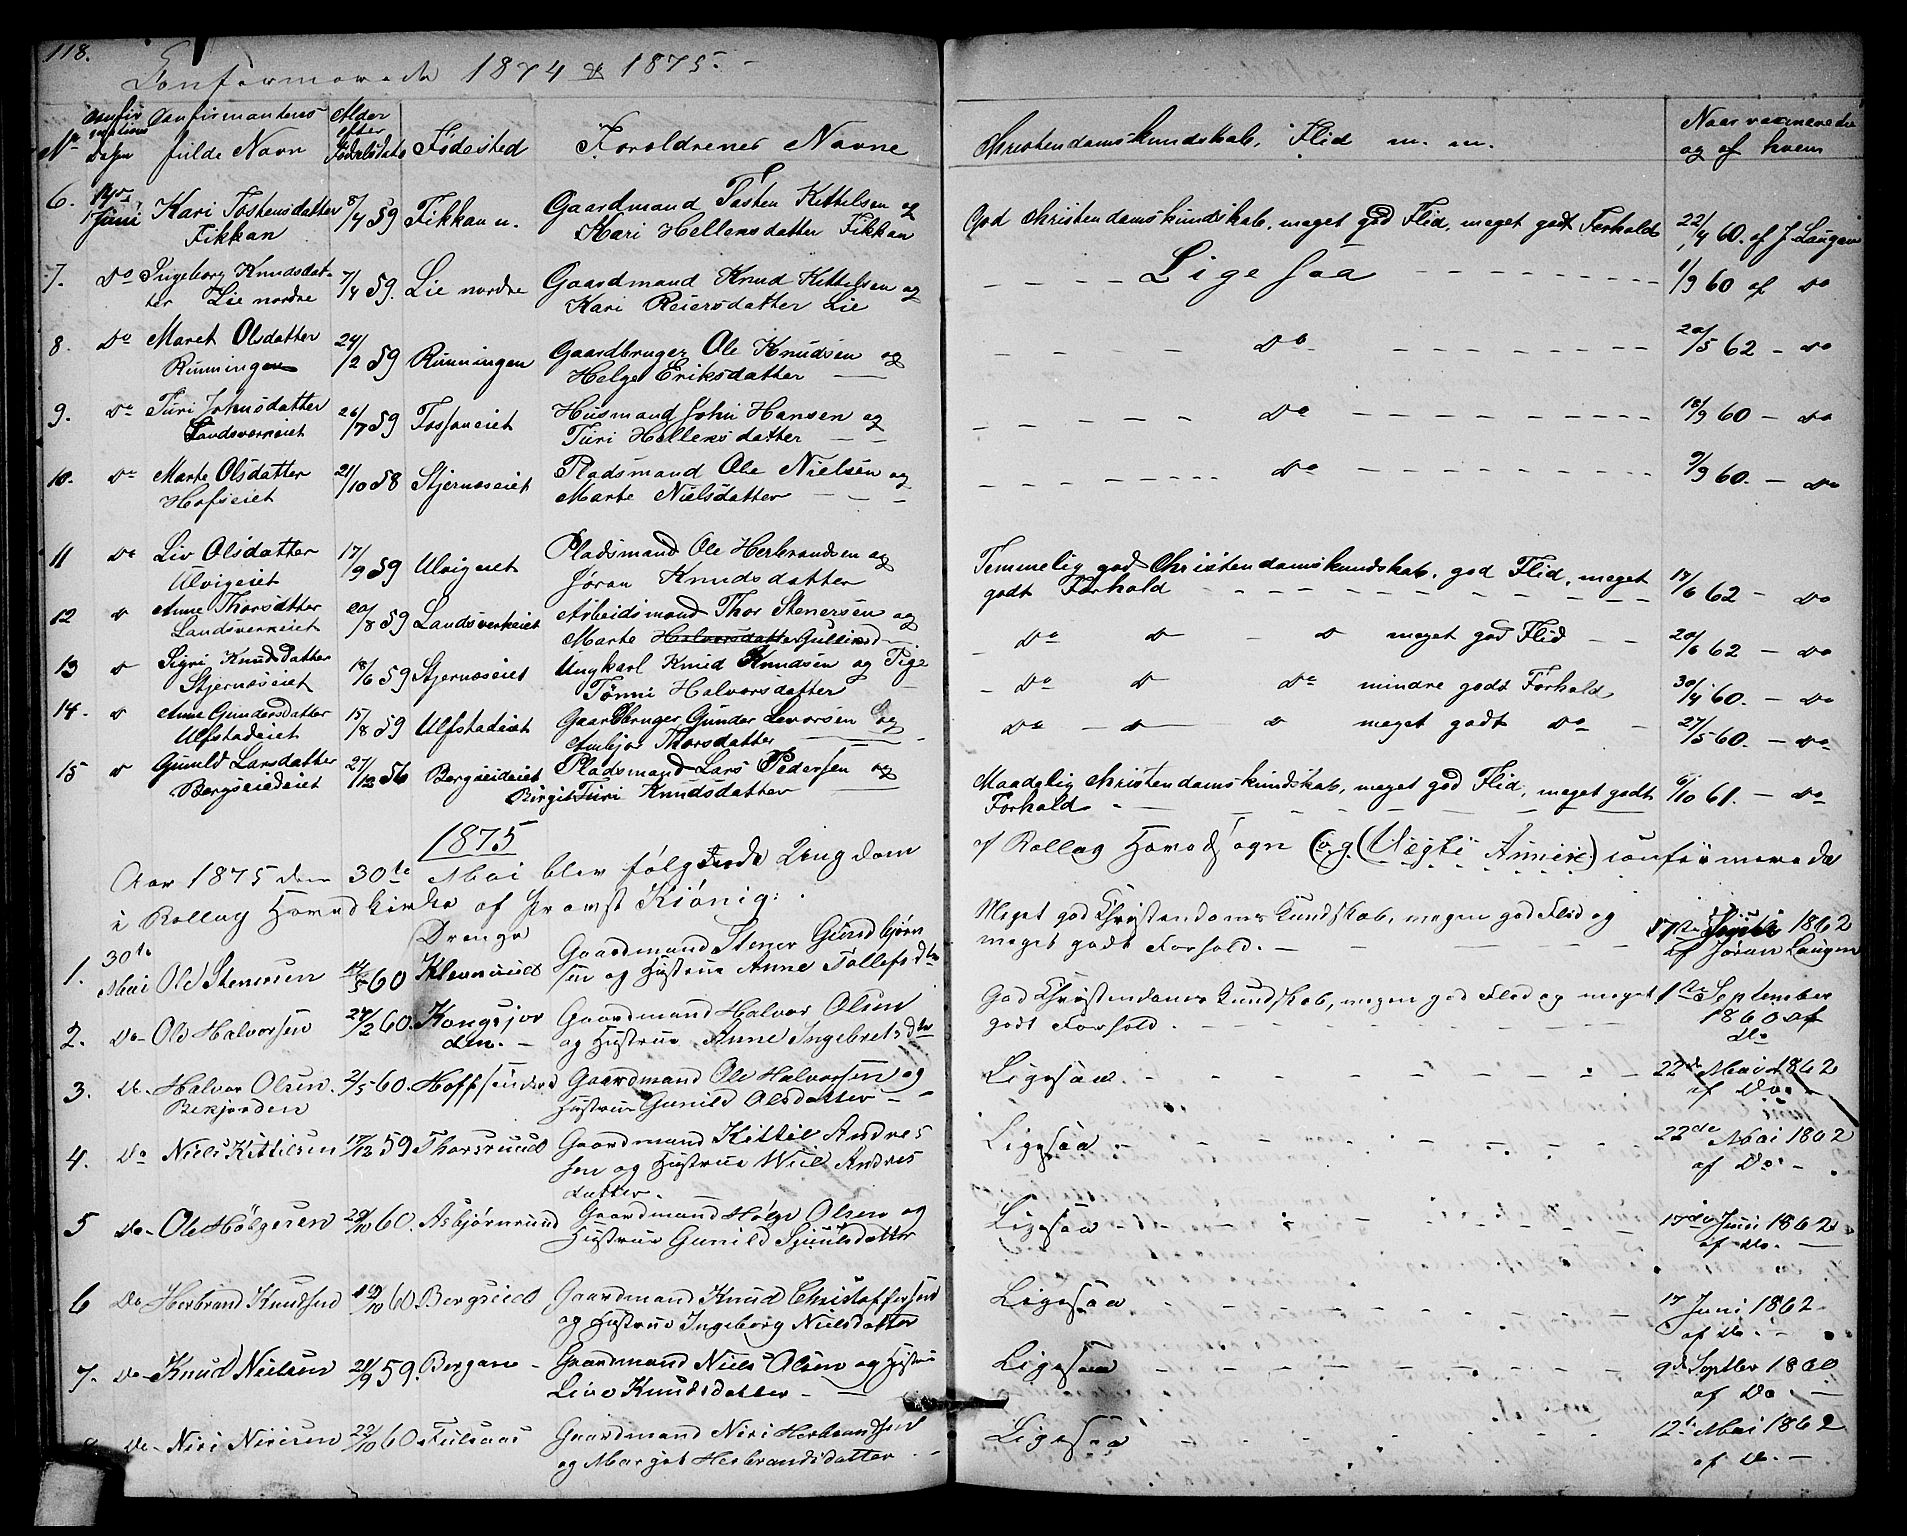 118.
Konfirmerede 1874 & 1875.
No Konfirmations Dagen Konfirmantens fulde Navn Alder efter Fødselsdato Fødested Forældrenes Navne Christendomskundskab, Flid m. m. Naar vaccinerede og af hvem
6. 14de Juni Kari Tostensdatter 8/4 59 Fikkan n. Gaardmand Tosten Kittelsen og God Christendomskundskab, meget god Flid, meget godt Forhold 22/4 60. af J. Laugen
Fikkan Kari Hellensdatter Fikkan
7. Do Ingeborg Knudsdat- 7/4 59. Lie nordre Gaardmand Knud Kittelsen og Lige saa 1/9 60 af Do
ter Lie nordre Kari Reiersdatter Lie
8. Do Maret Olsdatter 24/2 59 Runningen Gaardbruger Ole Knudsen og Do 20/5 62 - Do
Runningen Helge Eriksdatter
9. Do Turi Johnsdatter 26/7 59 Fossaneiet Husmand John Hansen og Do 18/9 60 - Do
Landsverkeiet Turi Hellensdatter
10. Do Marte Olsdatter 21/10 58 Stjernæseiet Pladsmand Ole Nielsen og Do 9/9 60. - Do
Hofseiet Marte Nielsdatter
11 Do Liv Olsdatter 17/9 59 Ulvigeiet Pladsmand Ole Herbrandsen og Temmelig god Christendomskundskab, god Flid, meget 17/6 62 - Do
Ulvigeiet Jøran Knudsdatter godt Forhold
12 D Anne Thorsdatter 20/8 59 Landsverkeiet Arbeidsmand Thor Stenersen og Do D D meget god Flid 20/6 62 - Do
Landsverkeiet Marte Halvorsdatter Gulliksd
13 D Sigri Knudsdatter 18/6 59 Stjernæseiet Ungkarl Knud Knudsen og Pige Do D Do mindre godt Forhold 30/4 60. - Do
Stjernæseiet Tønni Halvorsdatter
14. D Anne Gundersdatter 15/8 59 Ulfstadeiet Gaardbruger Gunder Levorsen og Do D D meget godt Do 27/5 60. - Do
Ulfstadeiet Ambjør Thorsdatter
15 D Gunild Larsdatter 27/12 56 Bergseideiet Pladsmand Lars Pedersen og Maadelig Christendomskundskab, meget god Flid, meget godt 6/10 61. - Do
Bergseideiet Birgit Turi Knudsdatter Forhold
1875
Aar 1875 den 30te Mai blev følgende Ungdom af Rollag Hovedsogn (og (Vegli Annex) confirmerede
i Rollag Hovedkirke af Provst Kiønig:
Drenge
1. 30te Mai Ole Stenersen 60 Klevmoieie Gaardmand Stener Gundbjørn Meget god Christendoms Kundskab, megen god Flid og 17de Juni 1862
sen og Hustrue Anne Tollefsdtr meget godt Forhold. af Jøran Laugen
2. Do Ole Halvorsen 24/2 60. Kongsjor Gaardmand Halvor Olsen God Christendoms Kundskab, megen god Flid og meget 1ste September
den. og Hustrue Anne Ingebretsdtr godt Forhold. 1860 af Do
3. Do Halvor Olsen 2/5 60. Hoffsendre Gaardmand Ole Halvorsen og Ligesaa. 22de Mai 1862
Bekjorden Hustrue Gunild Olsdatter af Do.
4. Do Niels Kittilsen 17/12 59 Thorsrud Gaardmand Kittil Andres Ligesaa. 22de Mai 1862
sen og Hustrue Andres af Do.
datter.
5 Do Ole Hølgesen 29/10 60. Asbjørnrud Gaardmand Hølge Olsen og Ligesaa 17de Juni 1862
Hustrue Gunild Sjuulsdatter af Do.
6 Do Herbrand Knudsen 10/10 60 Bergseid Gaardmand Knud Christoffersen Ligesaa 17 Juni 1862.
og Hustrue Ingeborg Nielsdatter af Do.
7. Do Knud Nielsen 21/9 59. Bergan Gaardmand Niels Olsen og Hustrue Ligesaa 9de Septber 1860
Livo Knudsdatter af Do
Do Niri Nirisen 22/10 60 Fulsaas Gaardmand Niri Herbrandsen Ligesaa 12te Mai 1862
og Margit Herbrandsdatter af D.